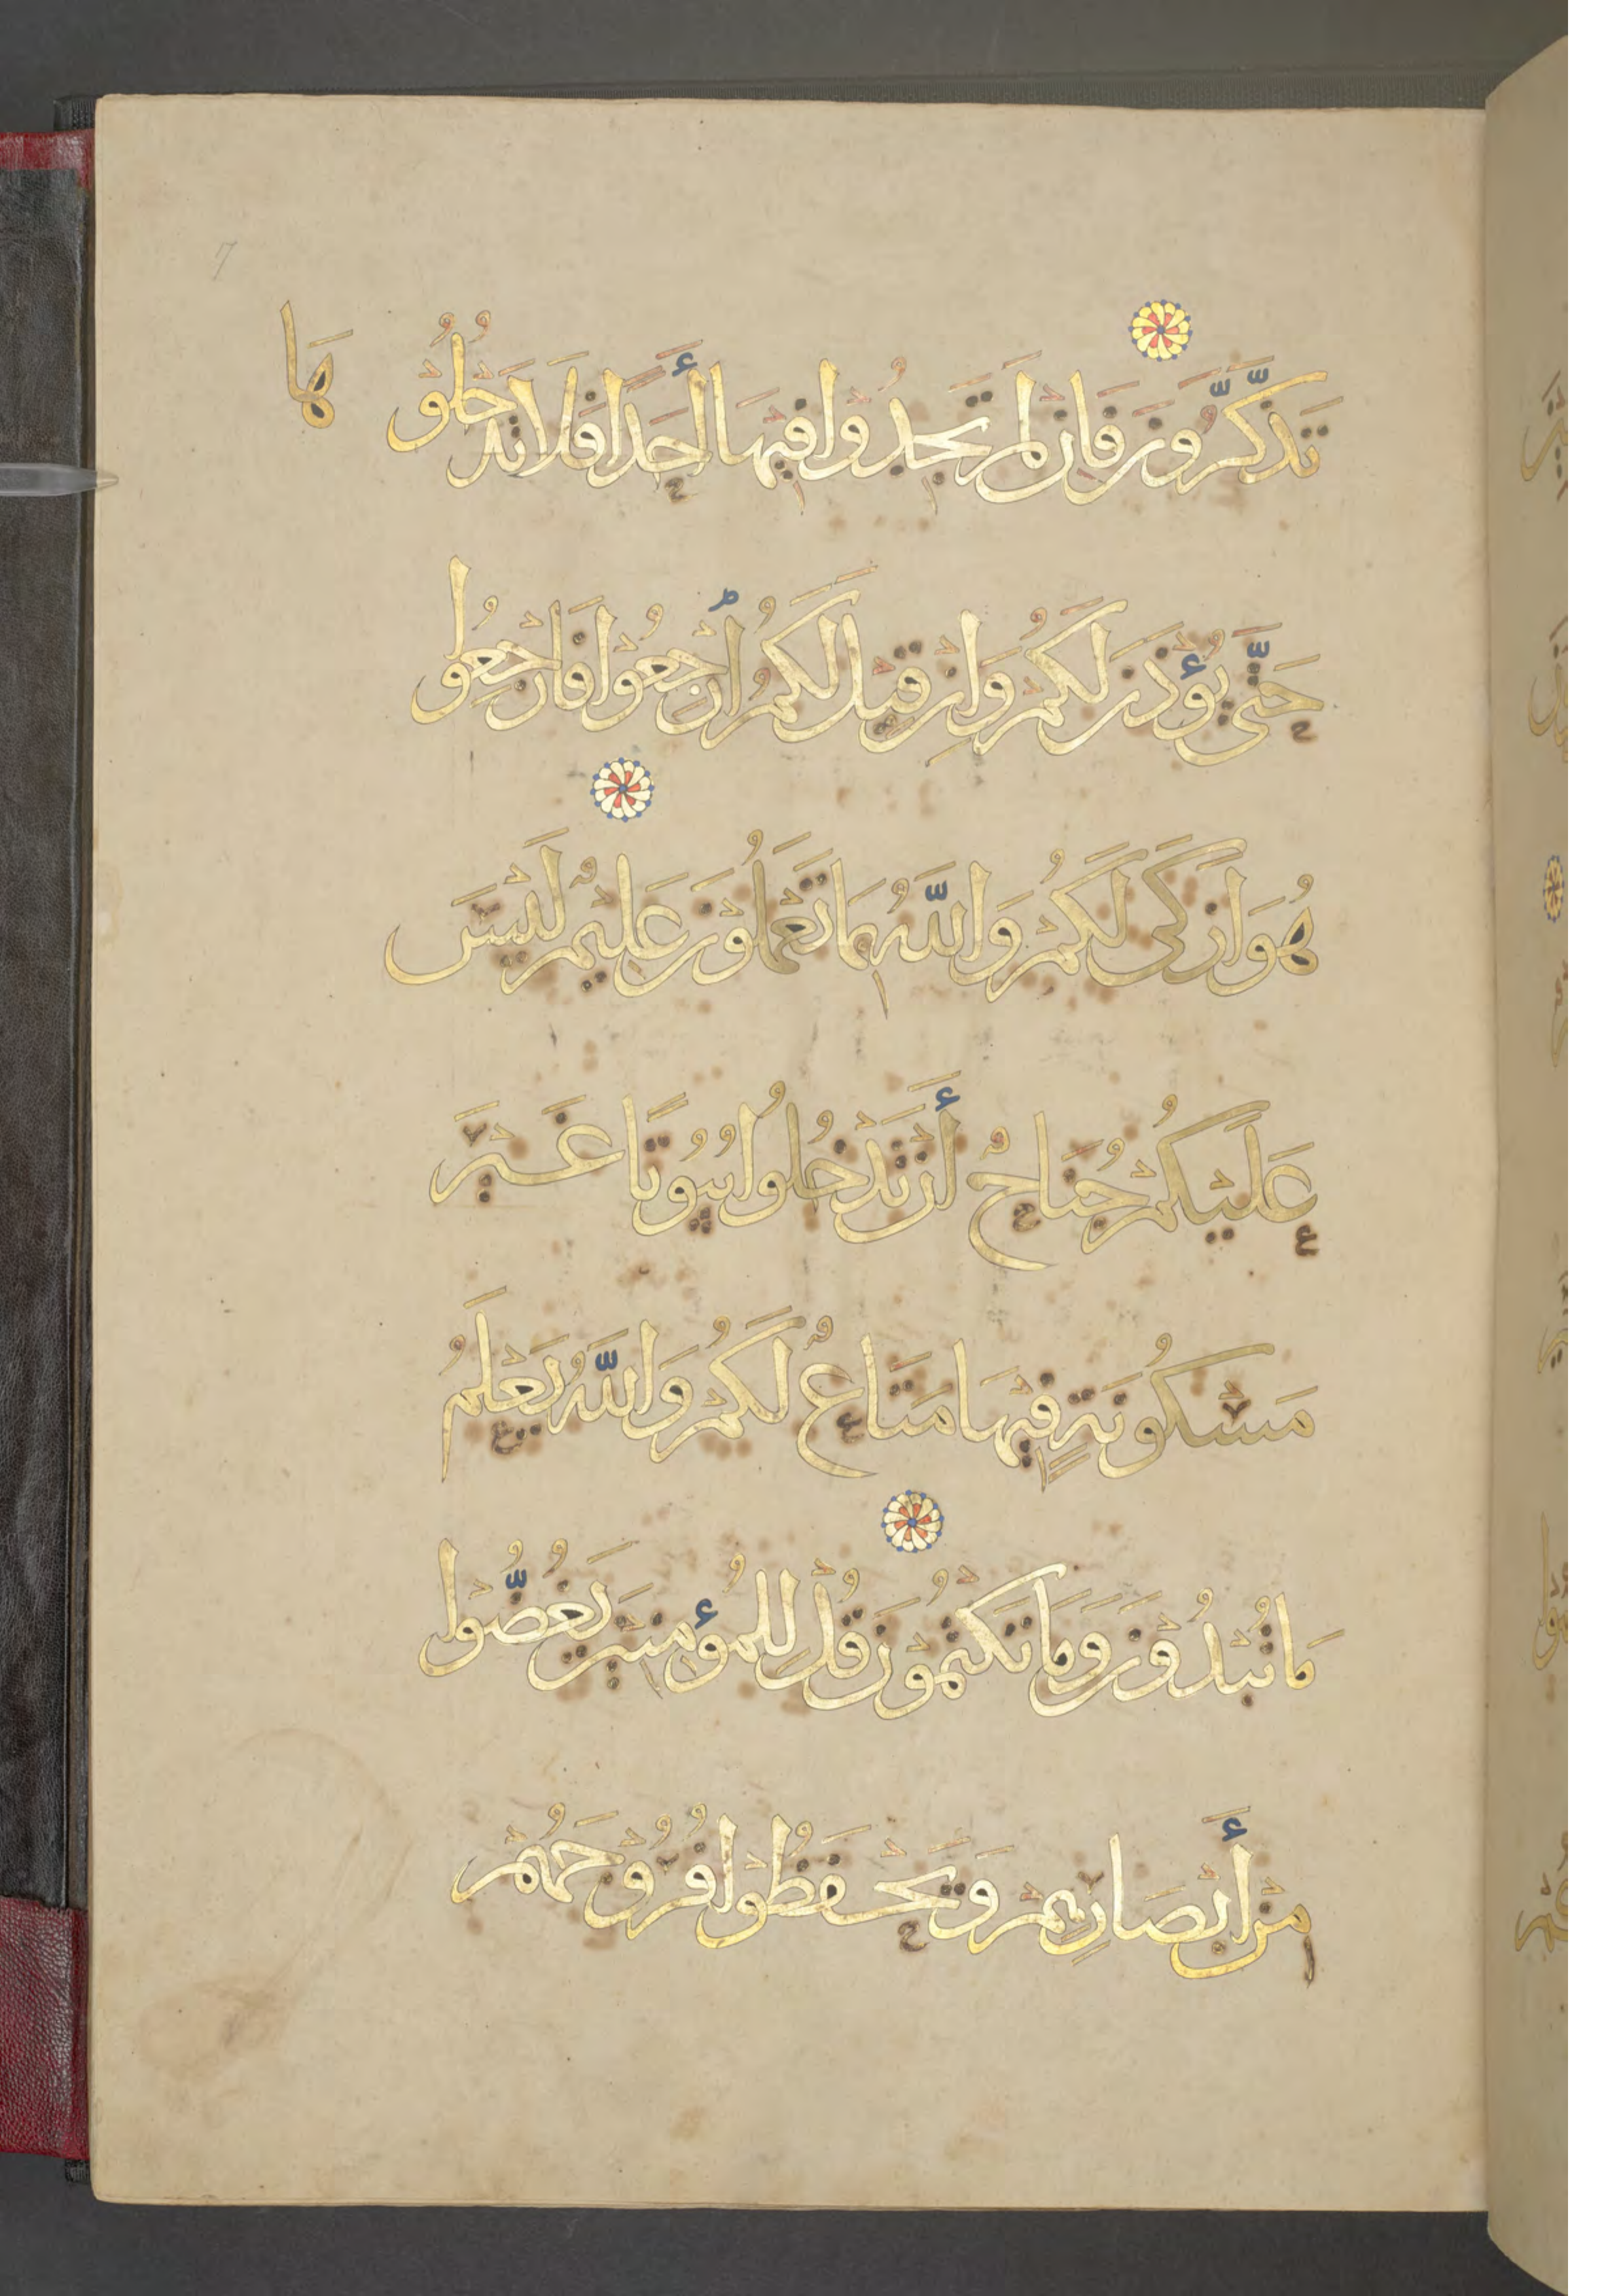 تَذَّكَّرُونَ فَإِن لَمْ تَجِدُوا فِيهَا أَحَدًا فَلَا تَدْخُلُوهَا
حَتَّى يُؤْذَنَ لَكُمْ وَإِن قِيلَ لَكُمُ ارْجِعُوا فَارْجِعُوا
هُوَ ازْكَى لَكُمْ وَاللَّهُ بِمَا تَعْمَلُونَ عَلِيمٌ لَيْسَ
عَلَيْكُمْ جُنَاحٌ أَن تَدْخُلُوا بُيُوتًا غَيْرَ
مَسْكُونَةٍ فِيهَا مَتَاعٌ لَكُمْ وَاللَّهُ يَعْلَمُ
مَا تُبْدُونَ وَمَا تَكْتُمُونَ قُلْ لِلْمُؤْمِنِينَ يَغُضُّوا
مِنْ أَبْصَارِهِمْ وَيَحْفَظُوا فُرُوجَهُمْ